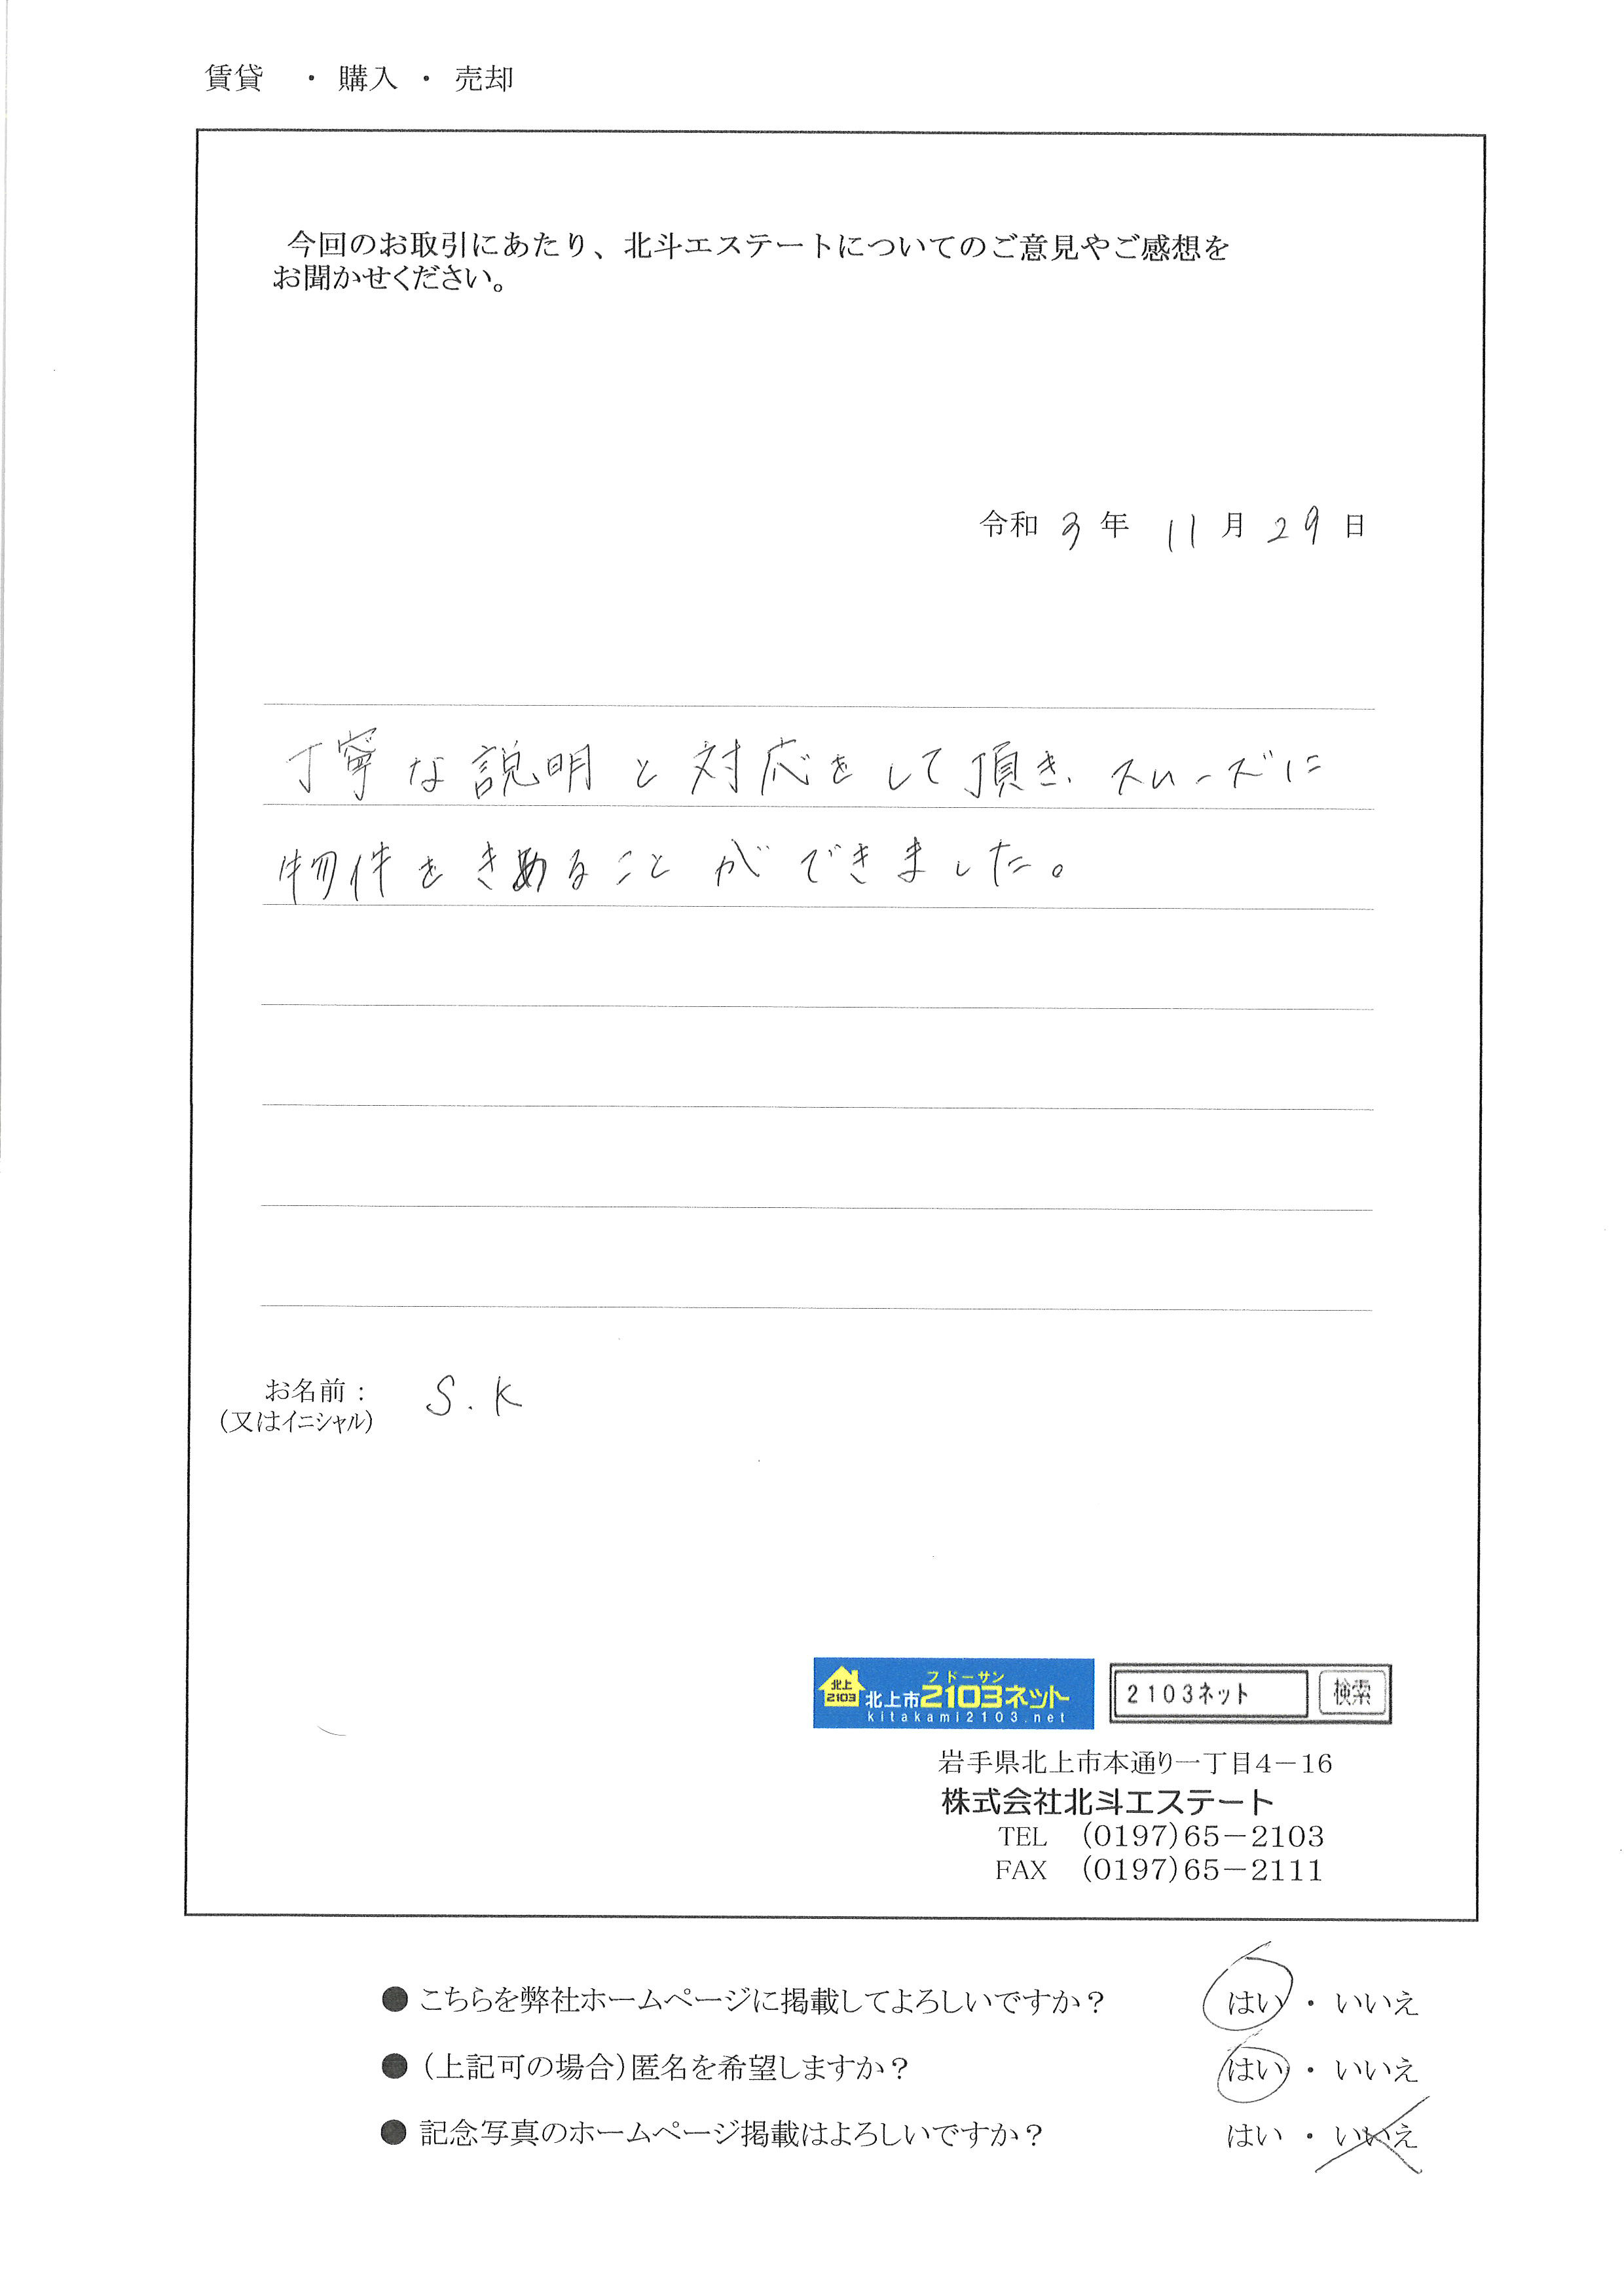 賃貸 ・ 購入 ・ 売却
今回のお取引にあたり、北斗エステートについてのご意見やご感想を
お聞かせください。
令和 3 年 11 月 29 日
丁寧な説明と対応をして頂き、スムーズに
物件をきめることができました。
お名前： S.K
（又はイニシャル）
フドーサン
北上 2103 北上市2103ネット
kitakami2103.net
2103ネット 検索
岩手県北上市本通り一丁目4－16
株式会社北斗エステート
TEL （0197）65－2103
FAX （0197）65－2111
● こちらを弊社ホームページに掲載してよろしいですか？ はい ・ いいえ
● （上記可の場合）匿名を希望しますか？ はい ・ いいえ
● 記念写真のホームページ掲載はよろしいですか？ はい ・ いいえ